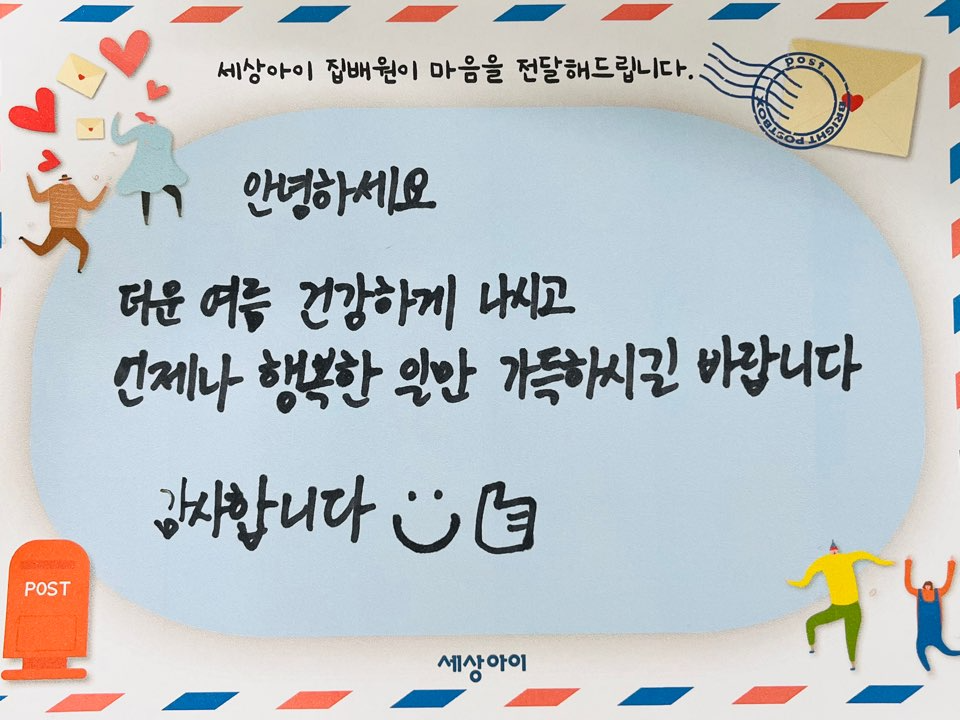 세상아이 집배원이 마음을 전달해드립니다.
Post
BRIGHT POSTBOX
안녕하세요
더운 여름 건강하게 나시고
언제나 행복한 일만 가득하시길 바랍니다
감사합니다
POST
세상아이